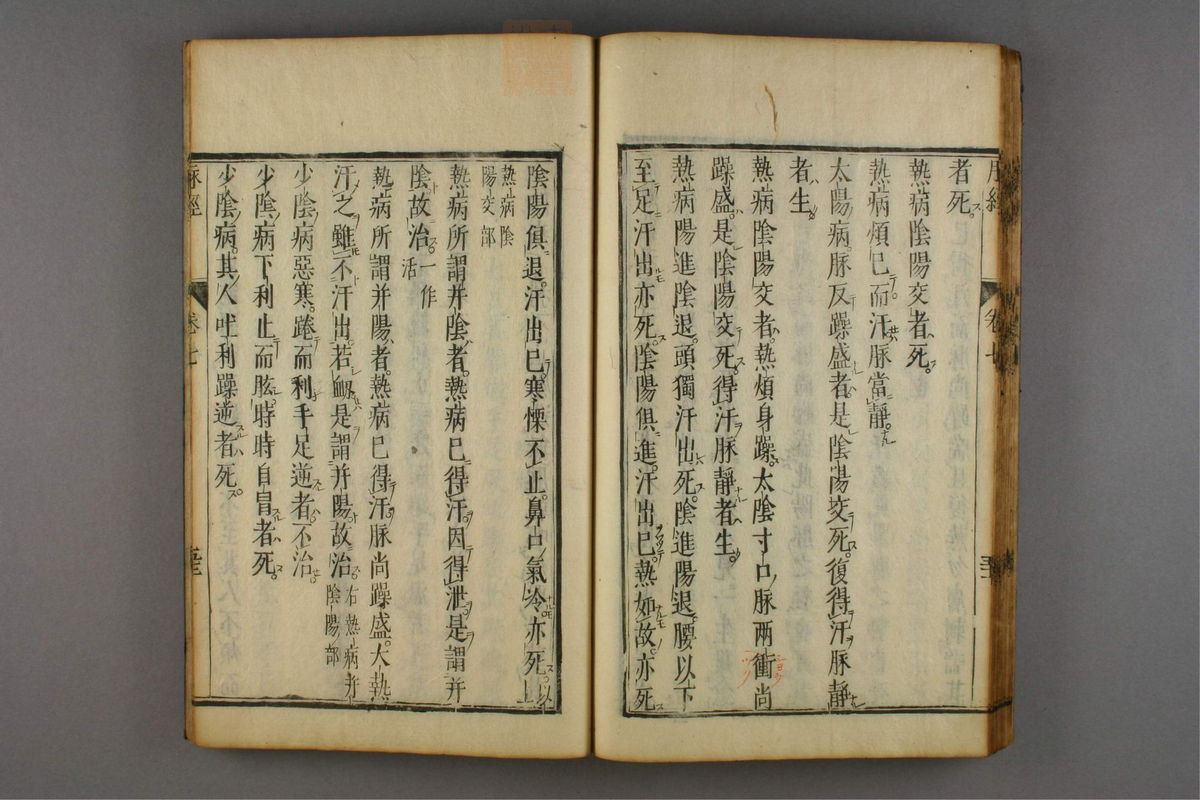 脉經
卷七
者死。
熱病陰陽交者死。
熱病煩已而汗脉當靜。
太陽病脉反躁盛者是陰陽交死。復得汗脉靜
者生
熱病陰陽交者。熱煩身躁。太陰寸口脉兩衝尚
躁盛。是陰陽交死。得汗脉靜者生。
熱病陽進陰退。頭獨汗出死。陰進陽退。腰以下
至足汗出亦死。陰陽俱進。汗出已。熱如故。亦死
陰陽俱退。汗出已。寒慄不止。鼻口氣冷。亦死。以上
熱病陰
陽交部
熱病所謂并陰者。熱病已得汗。因得泄。是謂并
陰。故治。一作
活
熱病所謂并陽者。熱病已得汗。脉尚躁盛。大熱
汗之。雖不汗出。若衂。是謂并陽。故治。右熱病并
陰陽部
少陰病惡寒。踡而利。手足逆者。不治。
少陰病下利止而眩。時時自冒者死。
少陰病。其人吐利躁逆者死。
脉經
卷七